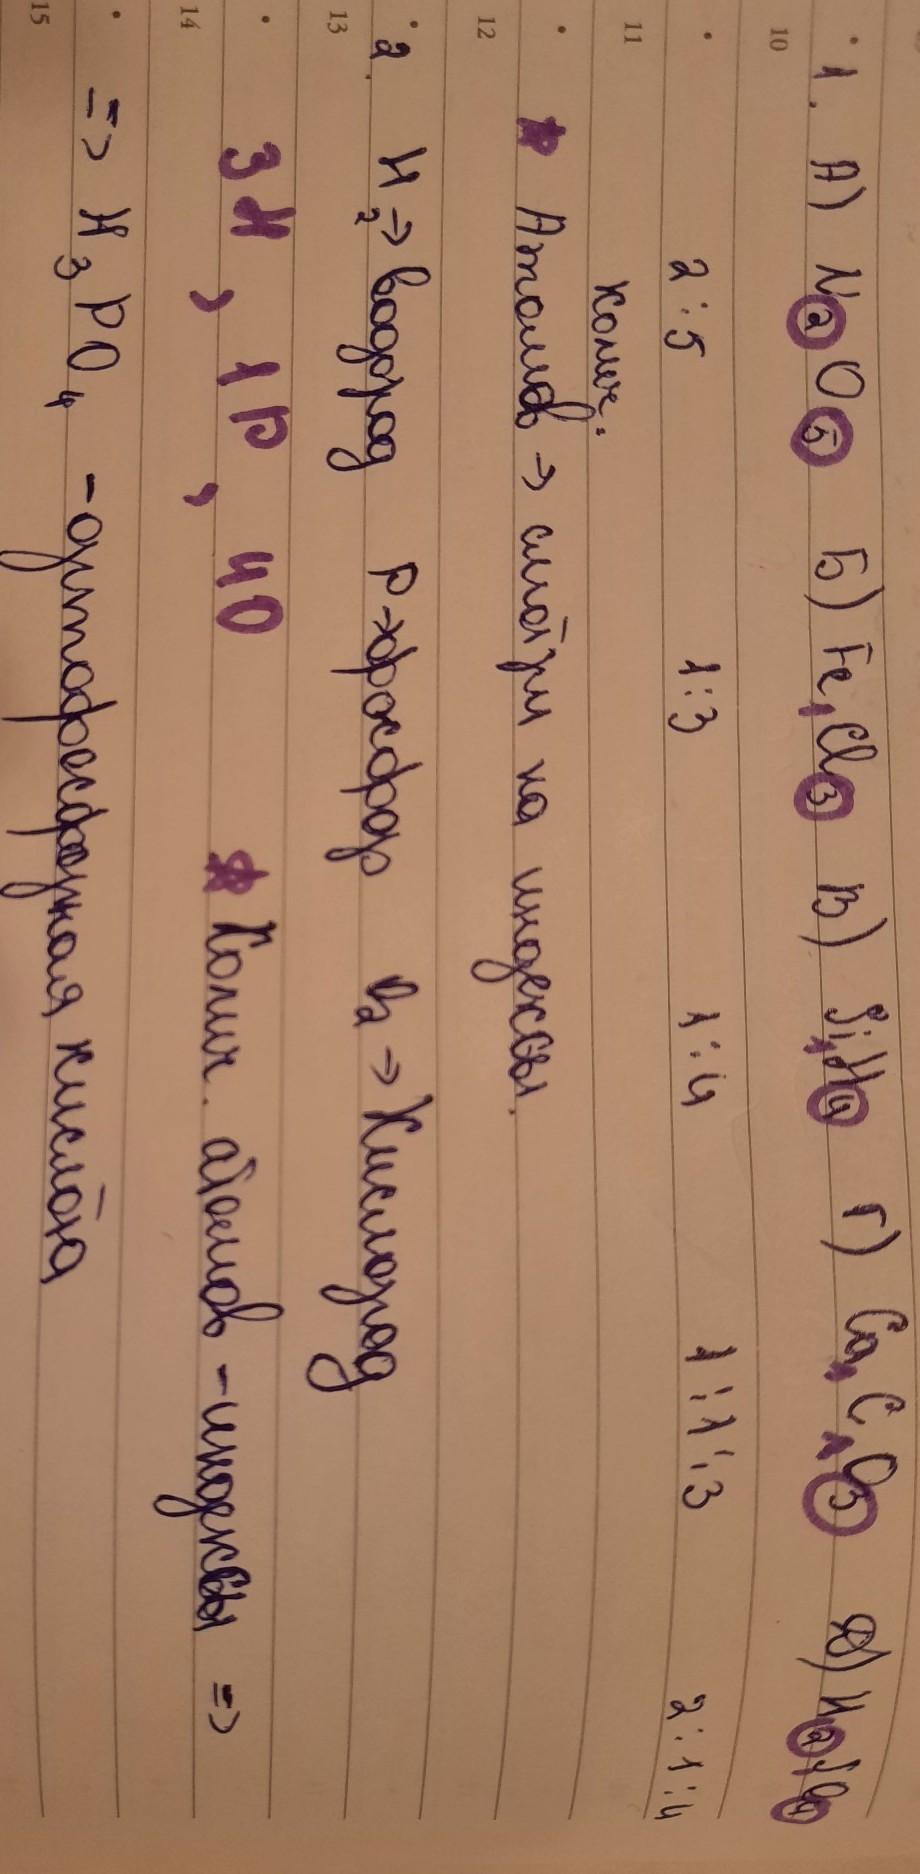 10
1. А) N₂O₅ Б) Fe₁Cl₃ В) Si₁H₄ Г) Ca₁C₁O₃ Д) H₂SO₄
2:5 1:3 1:4 1:1:3 2:1:4
11
колич.
Атомов → смотри на индексы.
12
2. H₂ → водород P → фосфор O₂ → Кислород
13
3H, 1P, 4O Колич. атомов - индексы =>
14
=> H₃PO₄ - ортофосфорная кислота
15